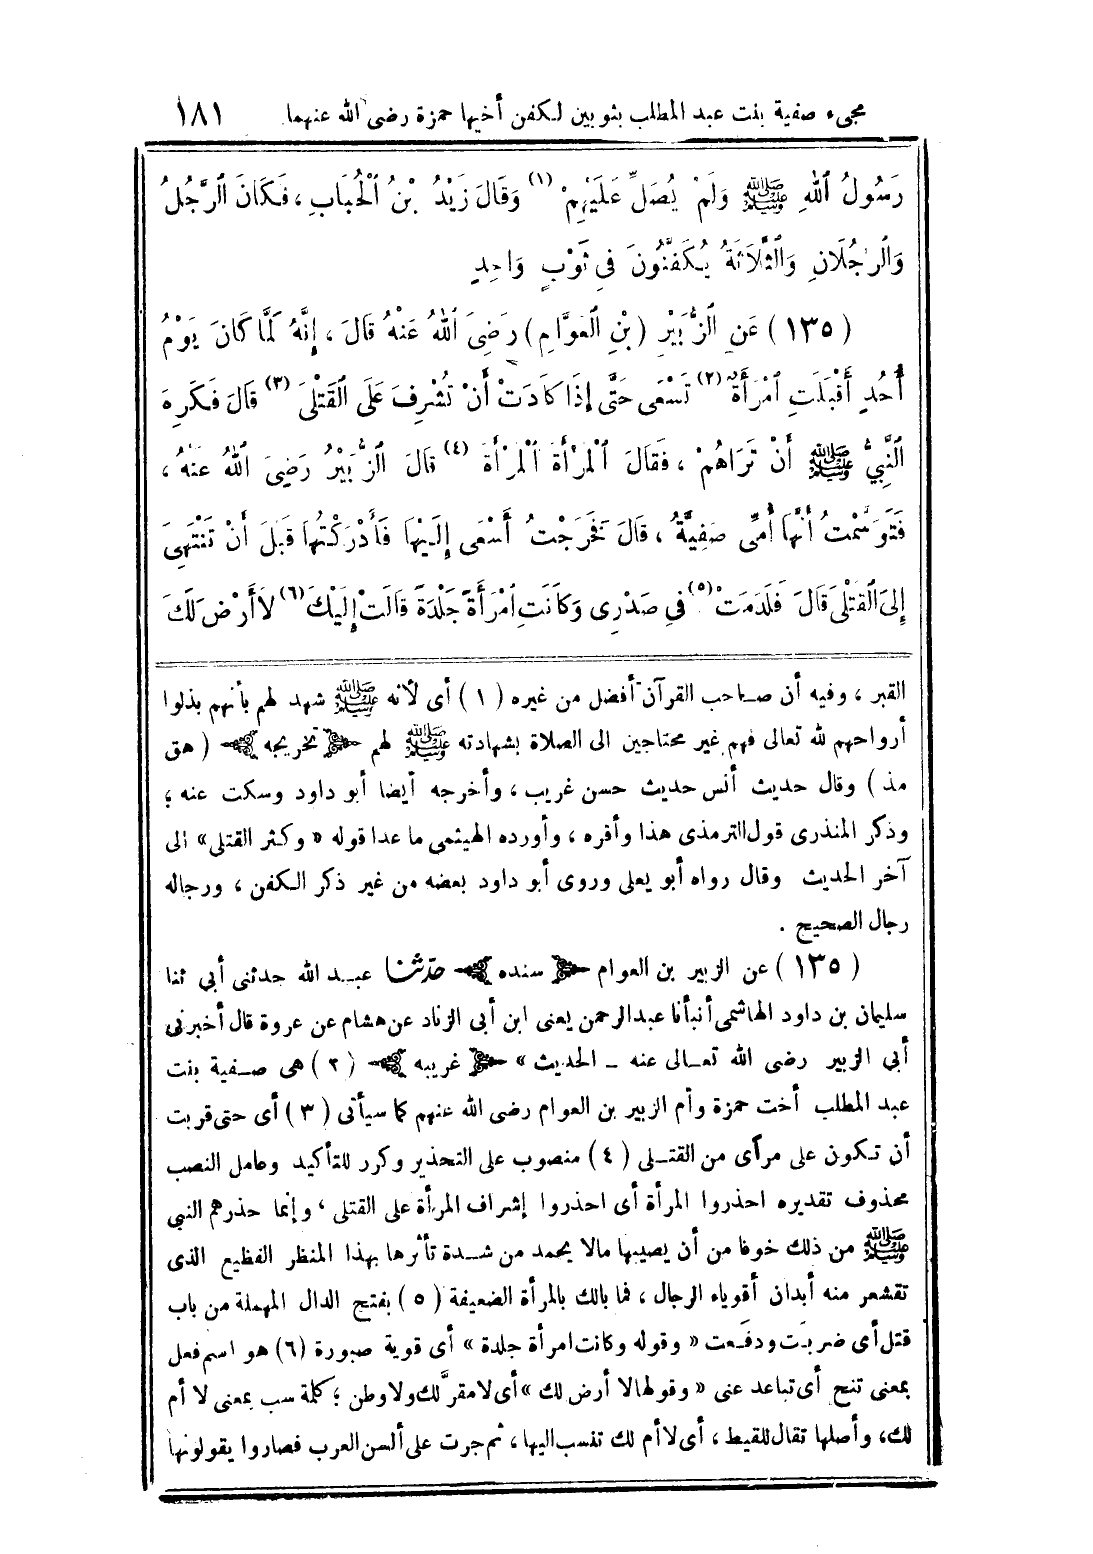 مجىء صفية بنت عبد المطلب بثوبين لكفن أخيها حمزة رضى الله عنهما. ١٨١
رَسُولُ ٱللهِ ﷺ وَلَمْ يُصَلِّ عَلَيْهِمْ (١) وَقَالَ زَيْدُ بْنُ ٱلْحُبَابِ ، فَكَانَ ٱلرَّجُلُ
وَٱلرَّجُلَانِ وَٱلثَّلَاثَةُ يُكَفَّنُونَ فِي ثَوْبٍ وَاحِدٍ
(١٣٥) عَنِ ٱلزُّبَيْرِ (بْنِ ٱلْعَوَّامِ) رَضِيَ ٱللهُ عَنْهُ قَالَ ، إِنَّهُ لَمَّا كَانَ يَوْمُ
أُحُدٍ أَقْبَلَتِ ٱمْرَأَةٌ (٢) تَسْعَى حَتَّى إِذَا كَادَتْ أَنْ تُشْرِفَ عَلَى ٱلْقَتْلَى (٣) قَالَ فَكَرِهَ
ٱلنَّبِيُّ ﷺ أَنْ تَرَاهُمْ ، فَقَالَ ٱلْمَرْأَةَ ٱلْمَرْأَةَ (٤) قَالَ ٱلزُّبَيْرُ رَضِيَ ٱللهُ عَنْهُ ،
فَتَوَسَّمْتُ أَنَّهَا أُمِّى صَفِيَّةُ ، قَالَ فَخَرَجْتُ أَسْعَى إِلَيْهَا فَأَدْرَكْتُهَا قَبْلَ أَنْ تَنْتَهِىَ
إِلَى ٱلْقَتْلَى قَالَ فَلَدَمَتْ (٥) فِي صَدْرِى وَكَانَتِ ٱمْرَأَةً جَلْدَةً قَالَتْ إِلَيْكَ (٦) لَا أَرْضَ لَكَ
القبر ، وفيه أن صاحب القرآن أفضل من غيره (١) أى لأنه ﷺ شهد لهم بأنهم بذلوا
أرواحهم لله تعالى فهم غير محتاجين الى الصلاة بشهادته ﷺ لهم ﴿ تخريجه ﴾ (هق
مذ) وقال حديث أنس حديث حسن غريب ، وأخرجه أيضا أبو داود وسكت عنه ؛
وذكر المنذرى قول الترمذى هذا وأقره ، وأورده الهيثمى ما عدا قوله « وكثر القتلى » الى
آخر الحديث وقال رواه أبو يعلى وروى أبو داود بعضه من غير ذكر الكفن ، ورجاله
رجال الصحيح .
(١٣٥) عن الزبير بن العوام ﴿ سنده ﴾ حدثنا عبد الله حدثنى أبي ثنا
سليمان بن داود الهاشمى أنبأنا عبد الرحمن يعنى ابن أبى الزناد عن هشام عن عروة قال أخبرنى
أبي الزبير رضى الله تعالى عنه ـ الحديث » ﴿ غريبه ﴾ (٢) هى صفية بنت
عبد المطلب أخت حمزة وأم الزبير بن العوام رضى الله عنهم كما سيأتى (٣) أى حتى قربت
أن تكون على مرآى من القتلى (٤) منصوب على التحذير وكرر للتأكيد وعامل النصب
محذوف تقديره احذروا المرأة أى احذروا إشراف المرأة على القتلى ، وإنما حذرهم النبي
ﷺ من ذلك خوفا من أن يصيبها مالا يحمد من شدة تأثرها بهذا المنظر الفظيع الذى
تقشعر منه أبدان أقوياء الرجال ، فما بالك بالمرأة الضعيفة (٥) بفتح الدال المهملة من باب
قتل أى ضربت ودفعت « وقوله وكانت امرأة جلدة » أى قوية صبورة (٦) هو اسم فعل
بمعنى تنح أى تباعد عنى « وقولها لا أرض لك » أى لا مقرَّ لك ولا وطن ؛ كلمة سب بمعنى لا أم
لك، وأصلها تقال للقيط ، أى لا أم لك تنسب اليها ، ثم جرت على ألسن العرب فصاروا يقولونها